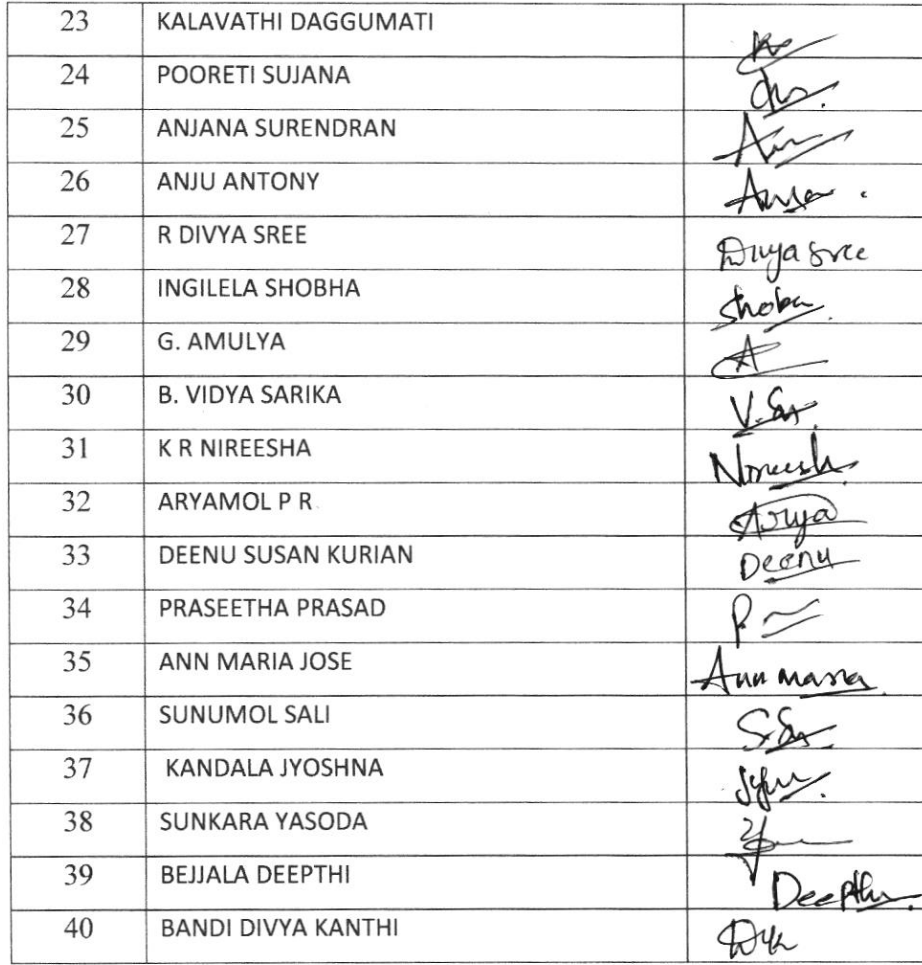 23 KALAVATHI DAGGUMATI
24 POORETI SUJANA
25 ANJANA SURENDRAN
26 ANJU ANTONY
27 R DIVYA SREE Divya sree
28 INGILELA SHOBHA Shoba
29 G. AMULYA A
30 B. VIDYA SARIKA
31 K R NIREESHA Nireesh
32 ARYAMOL P R Arya
33 DEENU SUSAN KURIAN Deenu
34 PRASEETHA PRASAD
35 ANN MARIA JOSE Ann maria
36 SUNUMOL SALI
37 KANDALA JYOSHNA
38 SUNKARA YASODA
39 BEJJALA DEEPTHI Deepthi
40 BANDI DIVYA KANTHI